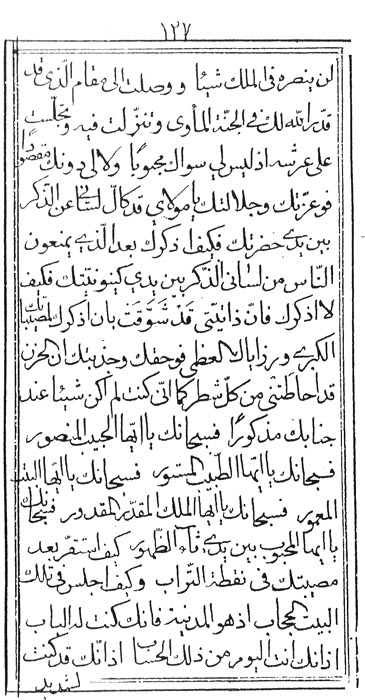 ١٢٧
لن ينصره فى الملك شيئا و وصلت الى مقام الّذى قد
قدّر الله لك فى الجنّة المأوى و تنزّلت فيه و جلست
على عرشه اذ ليس لى سواك محبوبًا ولا لى دونك مقصودًا
فوعزّتك و جلالتك يا مولاى قد كلّ لسانى عن الذّكر
بين يدى حضرتك فكيف اذكرك بعد الّذى يمنعون
النّاس من لسانى الذّكر بين يدى كينونيّتك فكيف
لا اذكرك فانّ ذاتيّتى قد شوّقت بان اذكر
الكبرى و رزاياك العظمى فوحقّك و جذبيتك ان الحزن
قد احاطتنى من كلّ شطر كما انّى كنت لم اكن شيئا عند
جنابك مذكورًا فسبحانك يا ايّها الحبيب المنصور
فسبحانك يا ايّها الطّيب المستور فسبحانك يا ايّها البيت
المعمور فسبحانك يا ايّها الملك المقدّر المقدور فسبحانك
يا ايّها المحبوب بين يدى الظّهور كيف استقرّ بعد
مصيبتك فى نقطة التّراب و كيف اجلس فى تلك
البيت الحجاب اذ هو المدينة فانك كنت له الباب
اذ انك انت اليوم من ذلك الحساب اذ انّك قد كنت